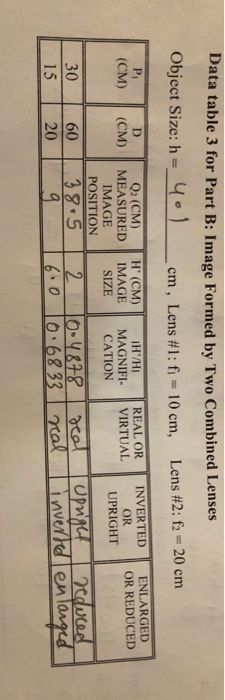 Data table 3 for Part B: Image Formed by Two Combined Lenses
Object Size: h = 4.1 cm , Lens #1: f1 = 10 cm, Lens #2: f2 = 20 cm
P1 (CM) | D (CM) | Q2 (CM) MEASURED IMAGE POSITION | H' (CM) IMAGE SIZE | |H'/H| MAGNIFI-CATION | REAL OR VIRTUAL | INVERTED OR UPRIGHT | ENLARGED OR REDUCED
30 | 60 | 38.5 | 2 | 0.4878 | real | upright | reduced
15 | 20 | 9 | 6.0 | 0.6833 | real | inverted | enlarged